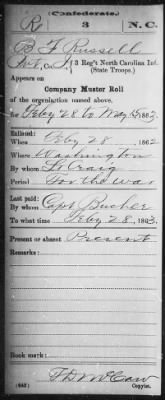 (Confederate.)
R 3 N.C.
B. F. Russell
Co. , 3 Reg't North Carolina Inf.
(State Troops.)
Appears on
Company Muster Roll
of the organization named above,
for Feby 28 to May 1st, 186
Enlisted:
When Feby 28, 1862
Where Washington
By whom Lt. Craig
Period For the war
Last paid:
By whom Capt
To what time Feby 28, 1863
Present or absent Present
Remarks:
Book mark:
(642) Copyist.